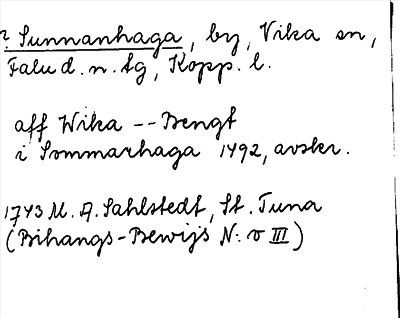 Sunnanhaga, by, Vika sn,
Falu d. n. tg, Kopp. l.
aff Wika -- Bengt
i Sommarhaga 1492, avskr.
1743 M. A. Sahlstedt, St. Tuna
(Bihangs-Bewijs N:o III)